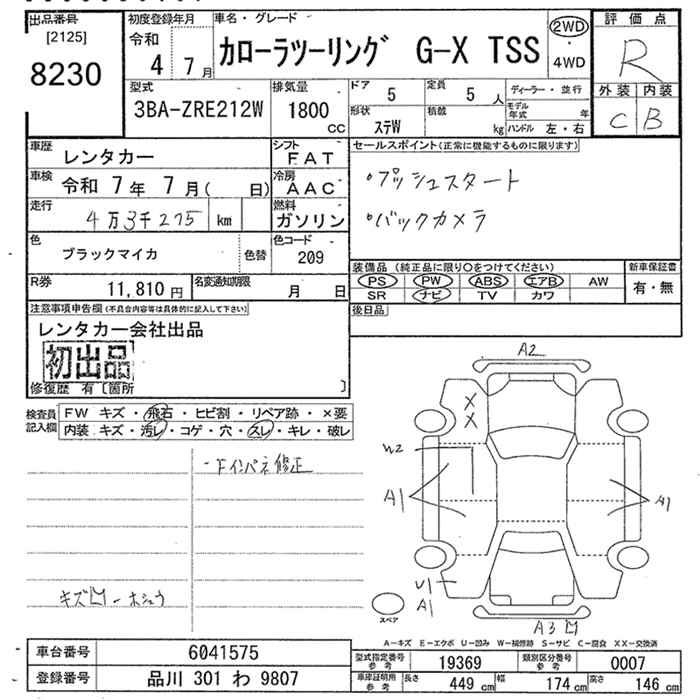 出品番号
[2125]
8230
初度登録年月
令和
4 7月
車名・グレード
カローラツーリング G-X TSS
2WD
・
4WD
評価点
R
外装 内装
C B
型式
3BA-ZRE212W
排気量
1800
CC
ドア 5
定員 5 人
形状 ステW
積載 kg
ディーラー・並行
モデル年式 年
ハンドル 左・右
車歴 レンタカー
シフト FAT
車検 令和 7年 7月( 日)
冷房 AAC
走行 4万3千275 km
燃料 ガソリン
色 ブラックマイカ 色替
色コード 209
R券 11,810円
名変通知期限 月 日
セールスポイント(正常に機能するものに限ります)
・プッシュスタート
・バックカメラ
装備品(純正品に限り○をつけてください)
PS PW ABS エアB AW
SR ナビ TV カワ
新車保証書
有・無
後日品
注意事項申告欄(不具合内容等は具体的に記入して下さい)
レンタカー会社出品
初出品
修復歴 有〔箇所 〕
検査員記入欄
FW キズ・飛石・ヒビ割・リペア跡・×要
内装 キズ・汚レ・コゲ・穴・スレ・キレ・破レ
-Fインパネ修正
A2
X
X
W2
A1
A1
U1
A1
A3
スペア
A-キズ E-エクボ U-凹み W-補修跡 S-サビ C-腐食 XX-交換済
車台番号 6041575
登録番号 品川 301 わ 9807
型式指定番号参考 19369
類別区分番号参考 0007
車庫証明用参考 長さ 449cm 幅 174cm 高さ 146cm